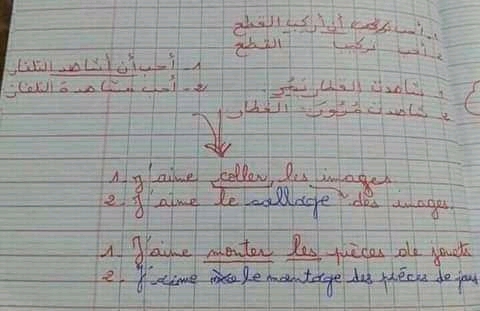 1- أحب أن أركب القطع
2- أحب تركيب القطع
1- أحب أن أشاهد التلفاز
2- أحب مشاهدة التلفاز
1 شاهدت القطار يَمُرُّ
2 شاهدت مُرُورَ القطار
1. J'aime coller les images.
2. J'aime le collage des images.
1. J'aime monter les pièces de jouets
2. J'aime le montage des pièces de